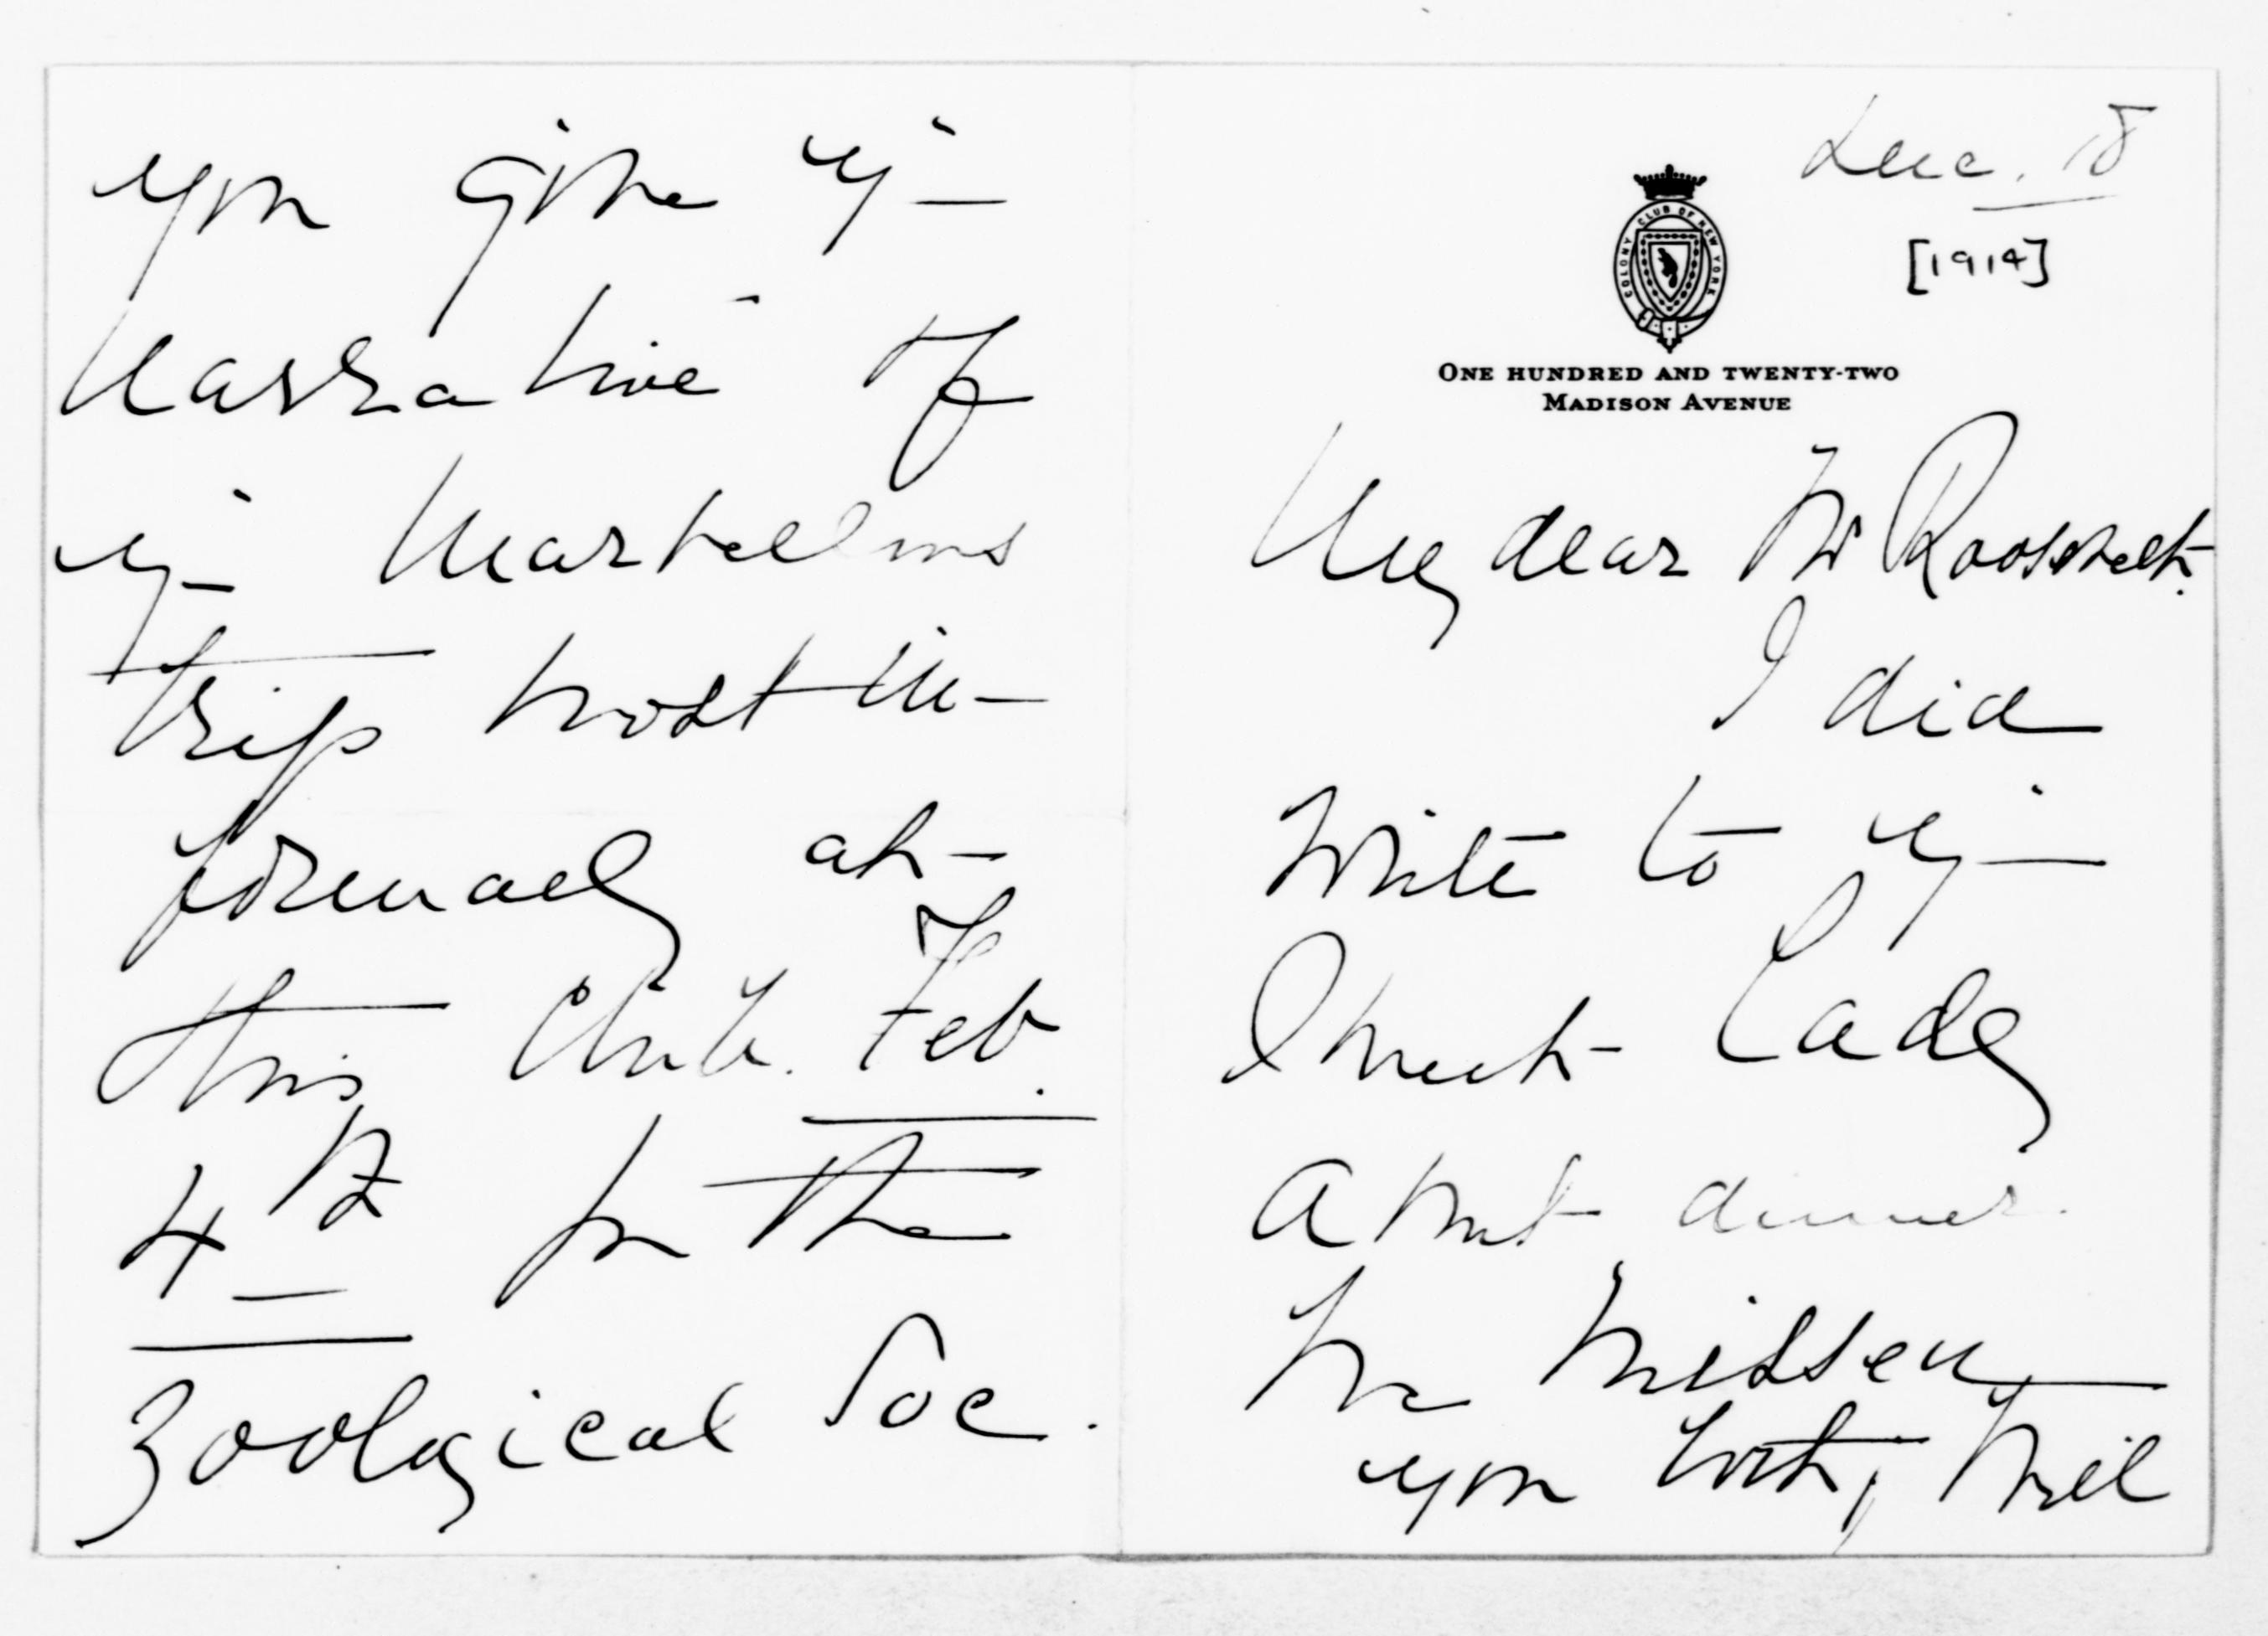 Dec. 18
[1914]
COLONY CLUB OF NEW YORK
ONE HUNDRED AND TWENTY-TWO
MADISON AVENUE
My dear Mr Roosevelt.
I did
write to ye
Sweet Lady
about dinner.
We missed
you both; Will
you give ye
narrative of
ye marvellous
trip most in-
formally at
this Club. Feb.
4th for the
Zoological Soc.